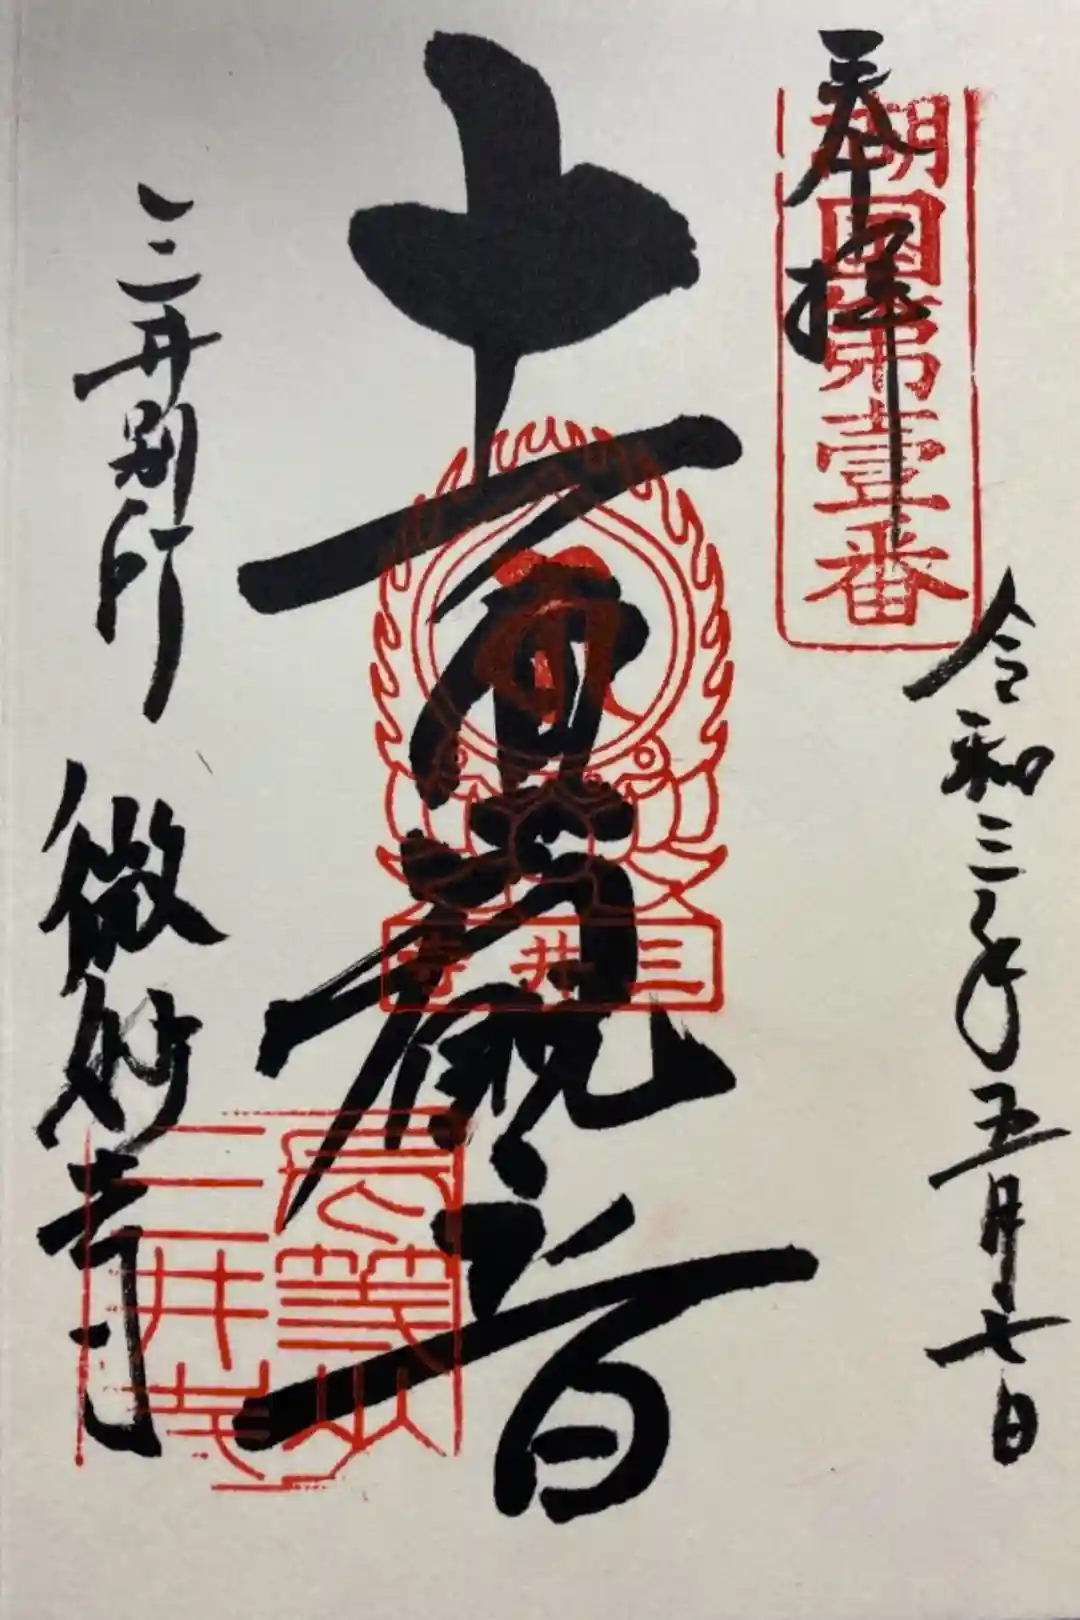 奉拝
湖國第壹番
令和三年五月七日
十一面観音
三井寺
三井別所
微妙寺
長等山
三井寺